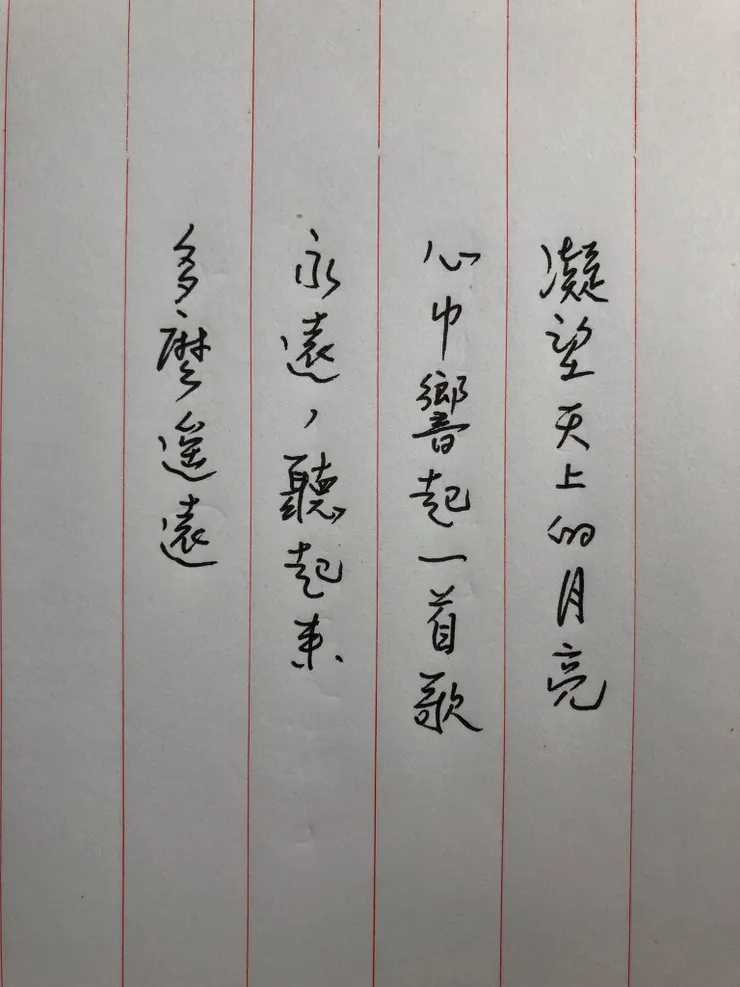 凝望天上的月亮
心中響起一首歌
永遠，聽起來
多麼遙遠